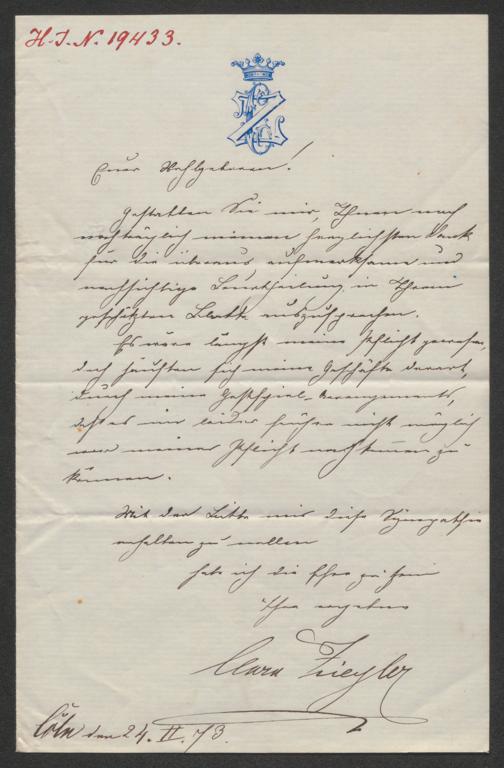 H.I.N. 19433.
Euer Wohlgeboren!
Gestatten Sie mir, Ihnen noch
nachträglich meinen herzlichsten Dank
für die überaus aufmerksame und
nachsichtige Beurtheilung in Ihrem
geschätzten Blatte auszusprechen.
Es wäre längst meine Pflicht gewesen,
doch häuften sich meine Geschäfte derart,
durch meine Gastspiel-Arrangements,
daß es mir leider früher nicht möglich
war meiner Pflicht nachkommen zu
können.
Mit der Bitte mir diese Sympathie
erhalten zu wollen
habe ich die Ehre zu sein
Ihre ergebene
Clara Ziegler
Cöln den 24. II. 73.